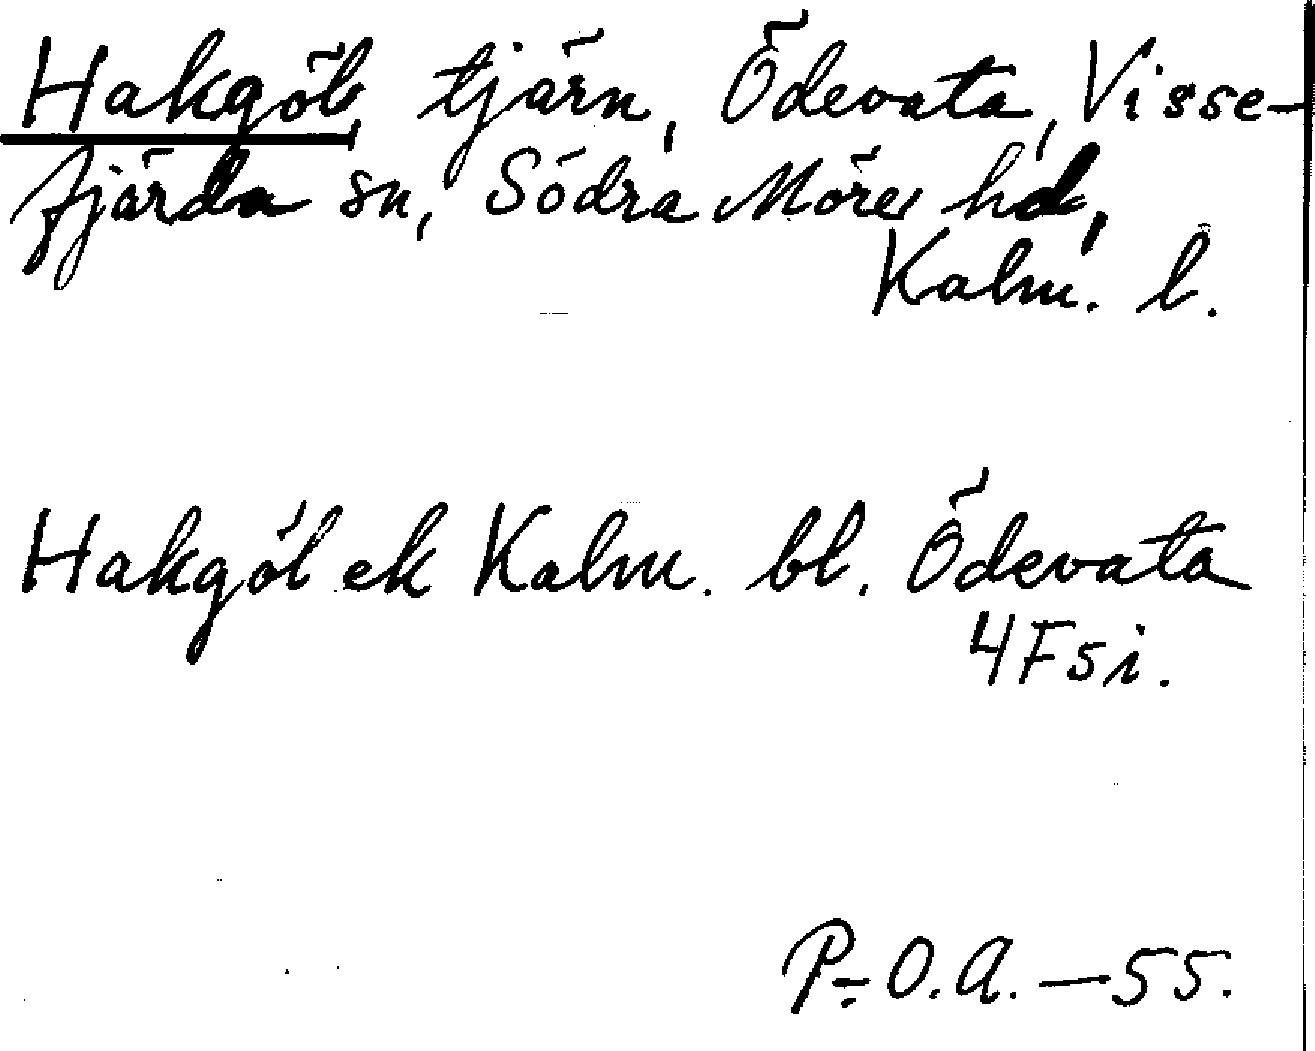 Hakgöl, tjärn, Ödevata, Visse-
fjärda sn, Södra Möre hd,
Kalm. l.
Hakgöl ek Kalm. bl. Ödevata
4F5i.
P.-O.A. — 55.